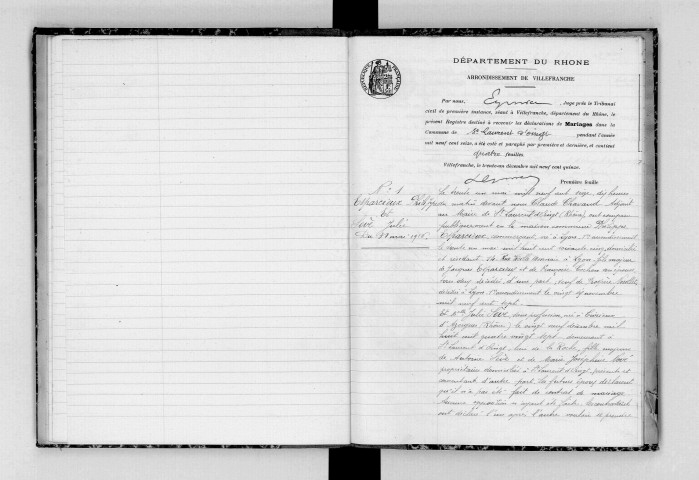 DÉPARTEMENT DU RHONE
ARRONDISSEMENT DE VILLEFRANCHE
RÉPUBLIQUE FRANÇAISE
Par nous, Juge près le Tribunal
civil de première instance, séant à Villefranche, département du Rhône, le
présent Registre destiné à recevoir les déclarations de Mariages dans la
Commune de St Laurent d'Oingt pendant l'année
mil neuf cent seize, a été coté et paraphé par première et dernière, et contient
quatre feuilles.
Villefranche, le trente-un décembre mil neuf cent quinze.
Première feuille
N° 1
Eparcieux Philippe
Et
Sève Julie
Du 31 mai 1916
Le trente un mai mil neuf cent seize, dix heures
du matin devant nous Claude Chavand Adjoint
au Maire de St Laurent d'Oingt (Rhône), ont comparu
publiquement en la maison commune Philippe
Eparcieux, né à Lyon
le trente un mai mil huit cent soixante cinq domicilié
et résidant 14 Rue à Lyon fils majeur
de Jacques Eparcieux et de Françoise
décédés d'une part, veuf de
décédée à Lyon le vingt novembre
mil neuf cent sept
Et Mlle Julie Sève sans profession, née à
d'Azergues (Rhône) le vingt neuf décembre mil
huit cent quatre vingt sept demeurant à
St Laurent d'Oingt, lieu de la Roche, fille majeure
de Antoine Sève et de Marie Joséphine
propriétaires domiciliés à St Laurent d'Oingt présents et
consentants d'autre part. Les futurs époux déclarent
qu'il n'a pas été fait de contrat de mariage
Aucune opposition n'ayant été faite, les contractants
ont déclaré l'un après l'autre vouloir se prendre